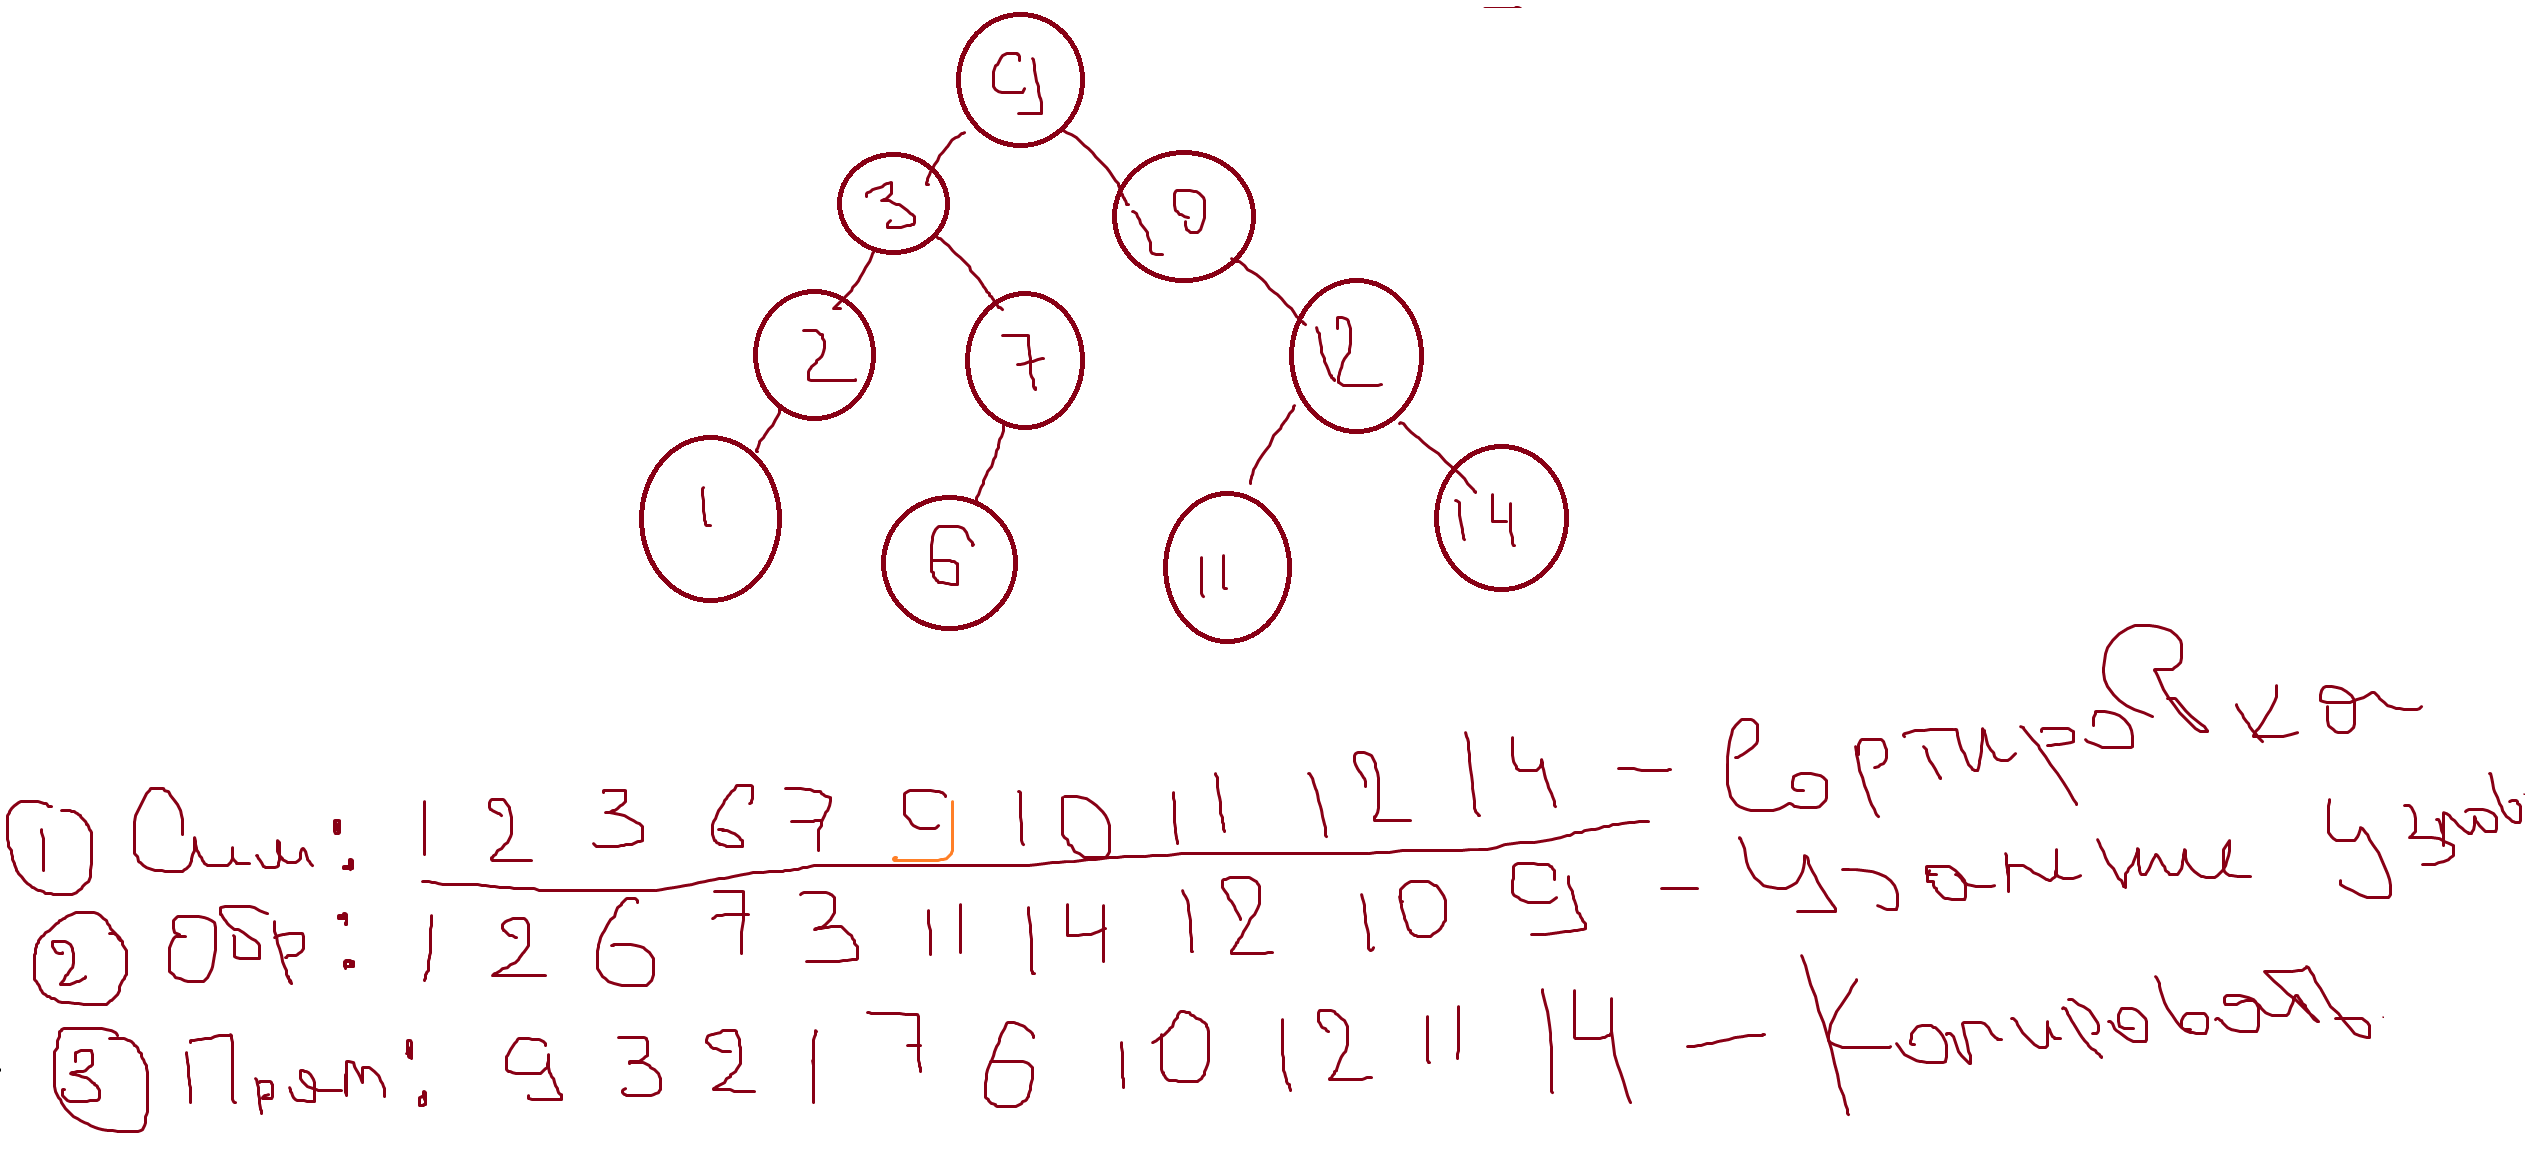 9
3 10
2 7 12
1 6 11 14
1 Сим: 1 2 3 6 7 9 10 11 12 14 — Сортировка
2 Обр: 1 2 6 7 3 11 14 12 10 9 — узлов
3 Прям: 9 3 2 1 7 6 10 12 11 14 — Копировать